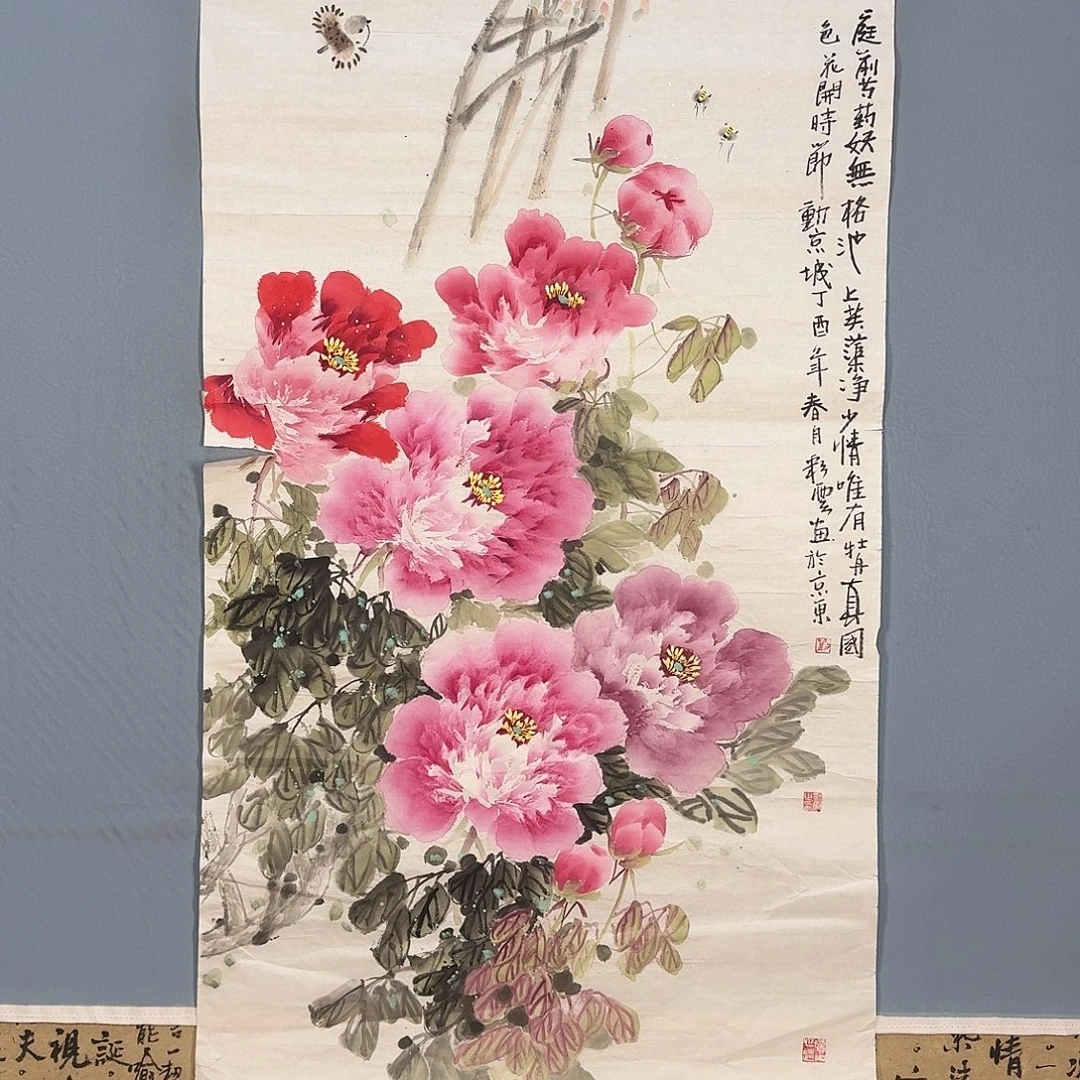 庭前芍药妖無格池上芙蕖净少情唯有牡丹真國
色花開時節動京城丁酉年春月彩雲画於京東
情
能
誕
視
夫